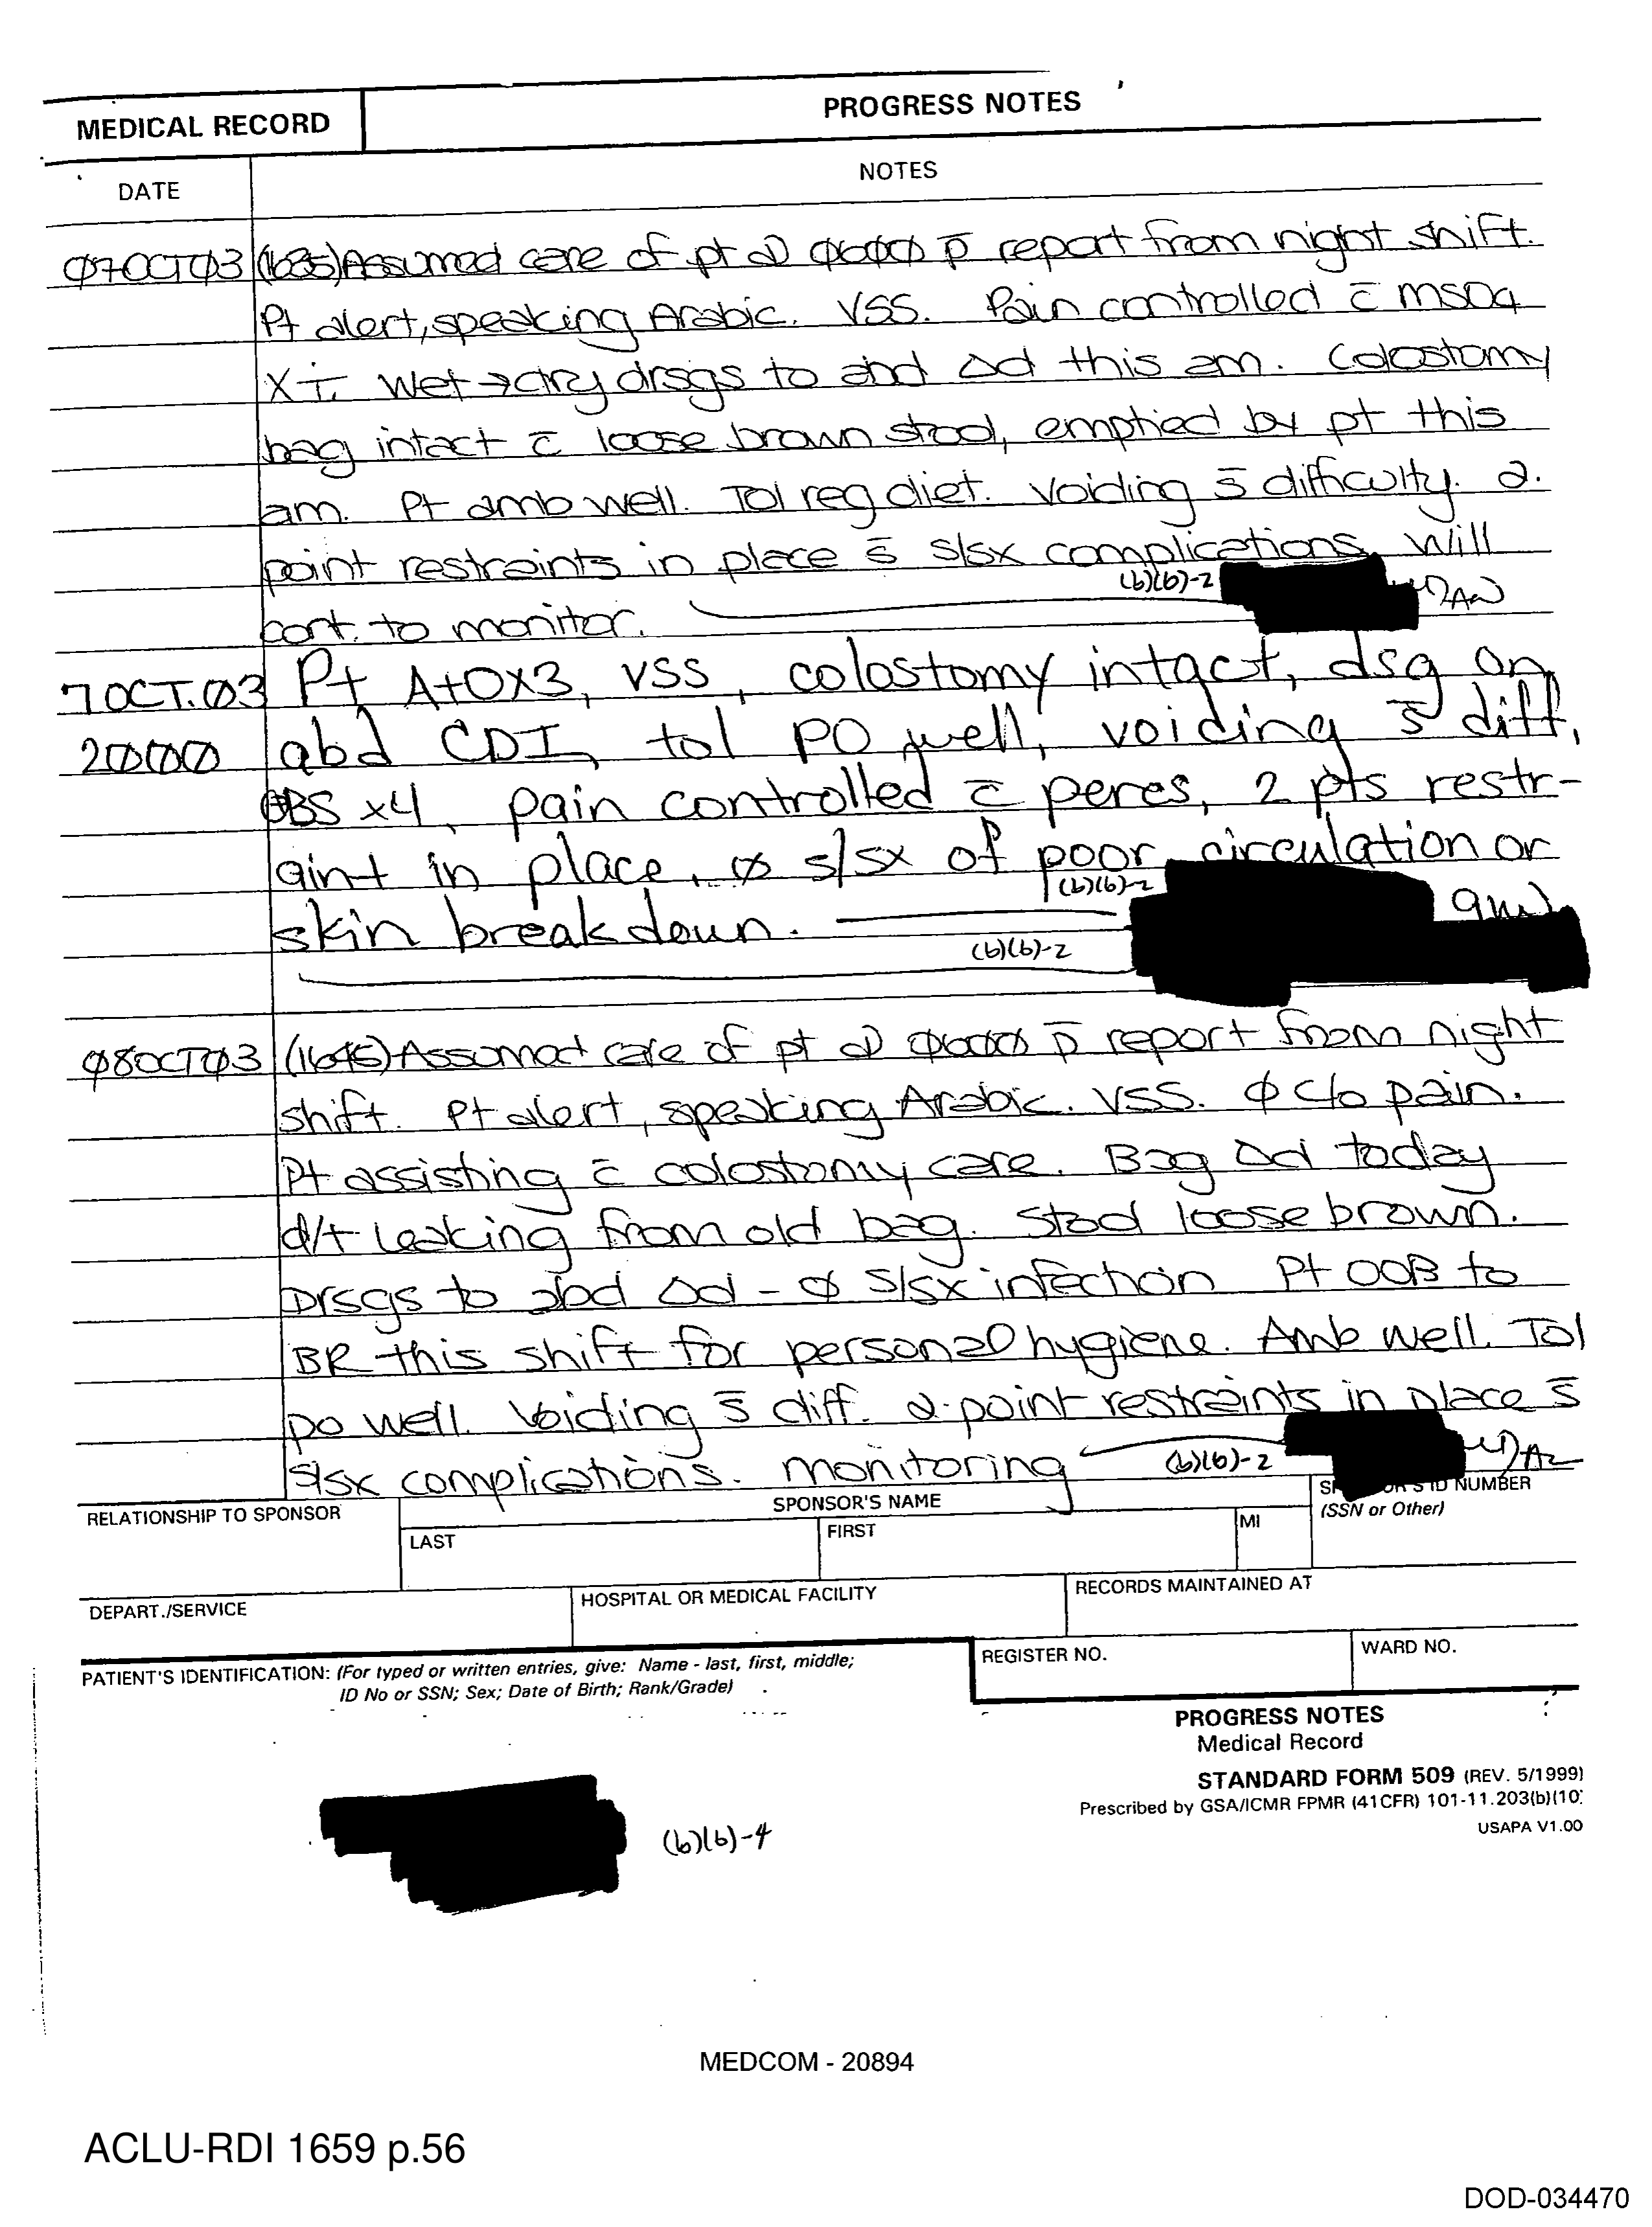 MEDICAL RECORD
PROGRESS NOTES
DATE
NOTES
07OCT03 (1635) Assumed care of pt @ 0600 p̄ report from night shift.
Pt alert, speaking Arabic. VSS. Pain controlled c̄ MSO4
X I. Wet → dry drsgs to abd Δd this am. Colostomy
bag intact c̄ loose brown stool, emptied by pt this
am. Pt amb well. Tol reg diet. Voiding s̄ difficulty. 2-
point restraints in place s̄ s/sx complications. Will
(b)(6)-2
cont. to monitor.
7 OCT.03 Pt A+OX3, VSS, colostomy intact, dsg on
2000 abd CDI, tol PO well, voiding s̄ diff,
⊕BS x4, pain controlled c̄ perces, 2 pts restr-
aint in place, ∅ s/sx of poor circulation or
(b)(6)-2
skin breakdown.
(b)(6)-2
08OCT03 (1645) Assumed care of pt @ 0600 p̄ report from night
shift. Pt alert, speaking Arabic. VSS. ∅ c/o pain.
Pt assisting c̄ colostomy care. Bag Δd today
d/t leaking from old bag. Stool loose brown.
Drsgs to abd Δd - ∅ s/sx infection Pt OOB to
BR this shift for personal hygiene. Amb well. Tol
po well. Voiding s̄ diff. 2-point restraints in place s̄
s/sx complications. Monitoring (b)(6)-2
RELATIONSHIP TO SPONSOR
SPONSOR'S NAME
ID NUMBER
(SSN or Other)
LAST
FIRST
MI
DEPART./SERVICE
HOSPITAL OR MEDICAL FACILITY
RECORDS MAINTAINED AT
PATIENT'S IDENTIFICATION: (For typed or written entries, give: Name - last, first, middle;
ID No or SSN; Sex; Date of Birth; Rank/Grade)
REGISTER NO.
WARD NO.
PROGRESS NOTES
Medical Record
STANDARD FORM 509 (REV. 5/1999)
Prescribed by GSA/ICMR FPMR (41CFR) 101-11.203(b)(10)
USAPA V1.00
(b)(6)-4
MEDCOM - 20894
ACLU-RDI 1659 p.56
DOD-034470